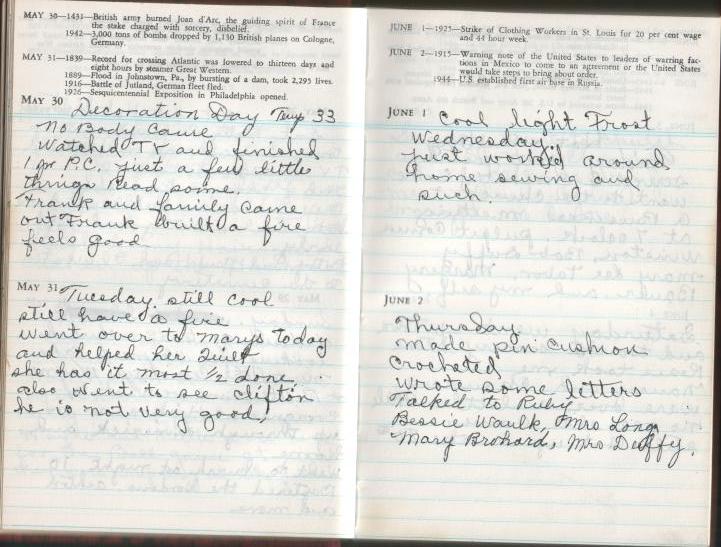 MAY 30—1431—British army burned Joan d'Arc, the guiding spirit of France
the stake charged with sorcery, disbelief.
1942—3,000 tons of bombs dropped by 1,130 British planes on Cologne,
Germany.
MAY 31—1839—Record for crossing Atlantic was lowered to thirteen days and
eight hours by steamer Great Western.
1889—Flood in Johnstown, Pa., by bursting of a dam, took 2,295 lives.
1916—Battle of Jutland, German fleet fled.
1926—Sesquicentennial Exposition in Philadelphia opened.
MAY 30 Decoration Day Temp 33
No Body Came
Watched TV and finished
1 pr P.C. just a few little
things Read some.
Frank and family came
out Frank built a fire
feels good
MAY 31 Tuesday, still cool
still have a fire
went over to Marys today
and helped her Quilt
she has it most 1/2 done
also went to see Clifton
he is not very good,
JUNE 1—1925—Strike of Clothing Workers in St. Louis for 20 per cent wage
and 44 hour week.
JUNE 2—1915—Warning note of the United States to leaders of warring fac-
tions in Mexico to come to an agreement or the United States
would take steps to bring about order.
1944—U.S. established first air base in Russia.
JUNE 1 Cool light Frost
Wednesday.
just worked around
home sewing and
such.
JUNE 2
Thursday
made pin cushion
Crocheted
wrote some letters
Talked to Ruby
Bessie Waulk, Mrs Long
Mary Brohard, Mrs Duffy.